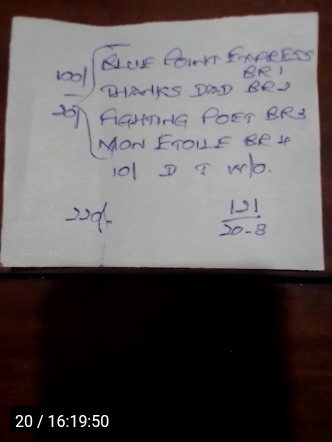 BLUE POINT EXPRESS
100/ BR1
THANKS DAD BR2
20/ FIGHTING POET BR3
MON ETOILE BR4
10/ D T W/O.
220/- 121
20-8
20 / 16:19:50